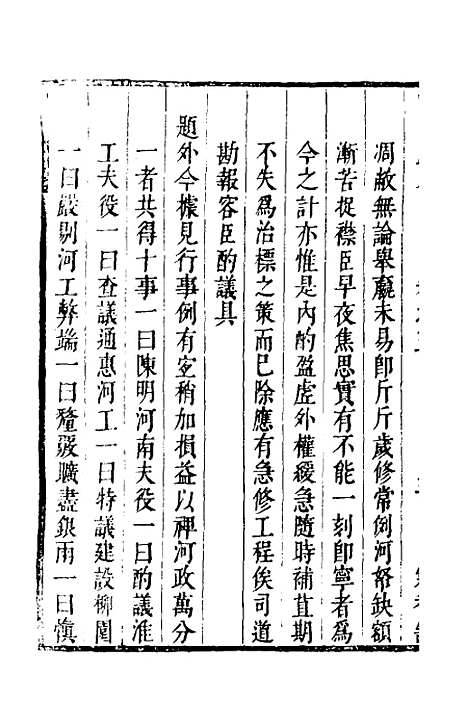 凋敝無論舉贏未易卽斤斤歲修常例河帑缺額
漸苦捉襟臣早夜焦思實有不能一刻卽寧者爲
今之計亦惟是內酌盈虛外權緩急隨時補苴期
不失爲治標之策而已除應有急修工程俟司道
勘報容臣酌議具
題外今據見行事例有宜稍加損益以裨河政萬分
一者共得十事一曰陳明河南夫役一曰酌議淮
工夫役一曰查議通惠河工一曰特議建設柳圍
一曰嚴剔河工弊端一曰釐覈曠盡銀兩一曰愼